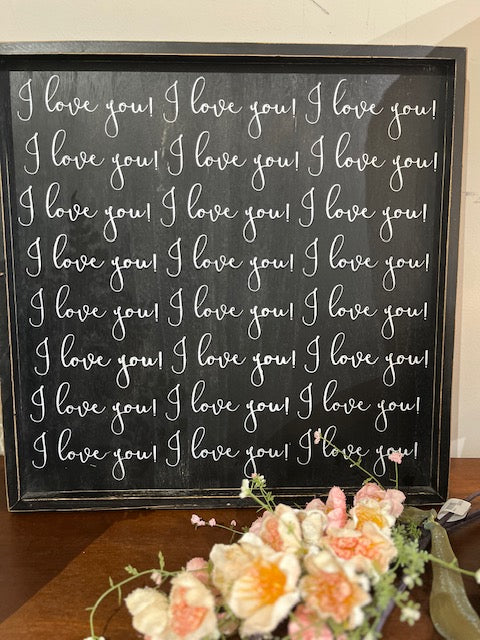 I love you! I love you! I love you!
I love you! I love you! I love you!
I love you! I love you! I love you!
I love you! I love you! I love you!
I love you! I love you! I love you!
I love you! I love you! I love you!
I love you! I love you! I love you!
I love you! I love you! I love you!